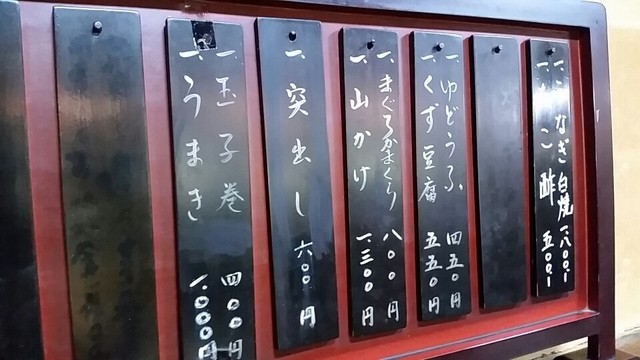 一、うなぎ白焼 一、八〇〇、一
こ酢 五〇〇、一
一、ゆどうふ 四五〇円
一、くず豆腐 五五〇円
一、まぐろ 八〇〇円
一、山かけ 一、三〇〇円
一、突出し 六〇〇円
一、玉子巻 四〇〇円
一、うまき 一、〇〇〇円